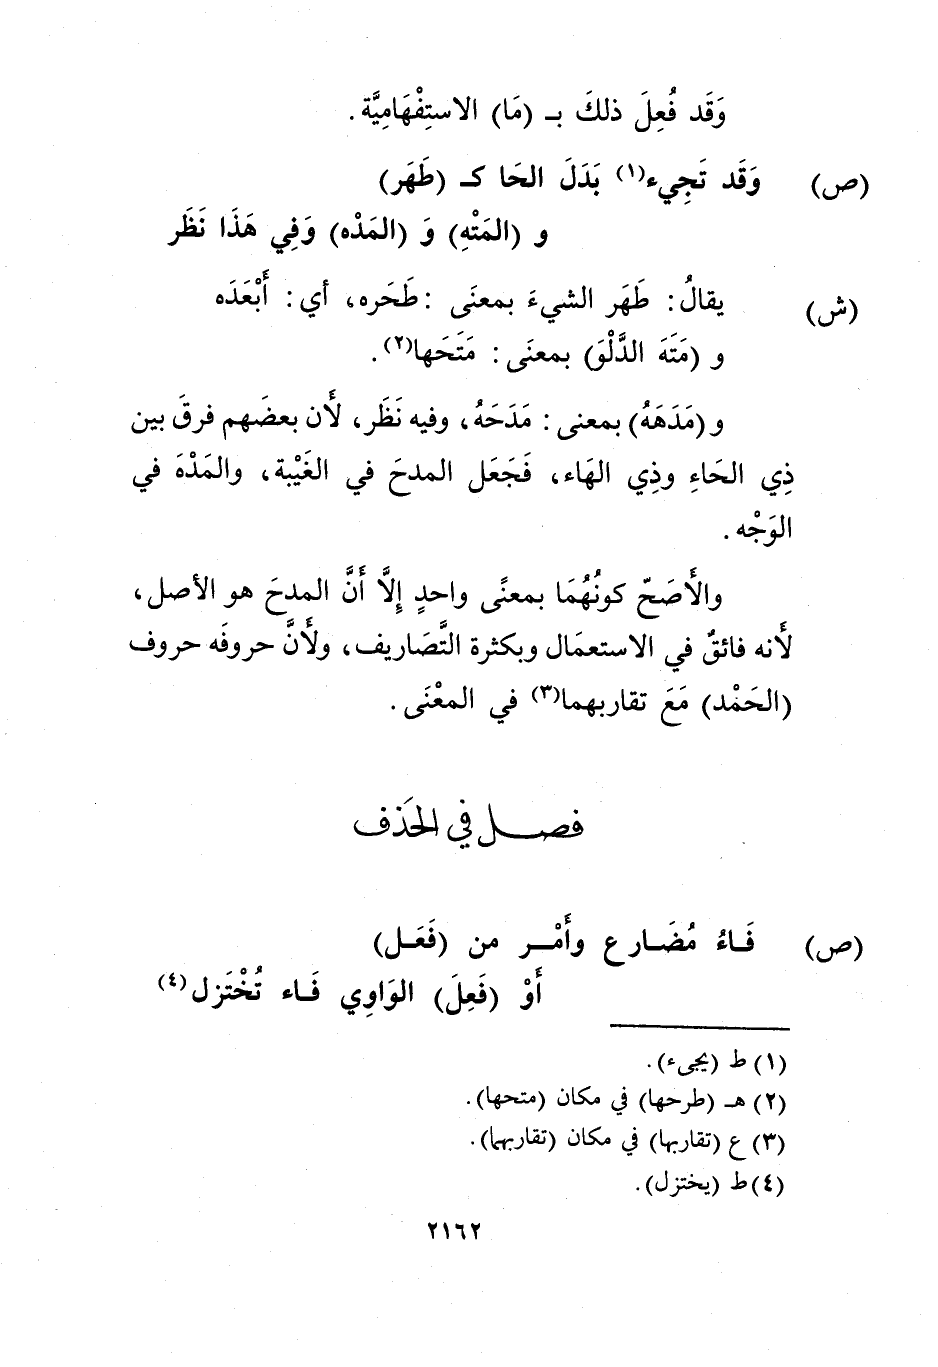 وَقَد فُعِلَ ذلكَ بـ (مَا) الاستِفْهَامِيَّة .
(ص) وَقَد تَجِيء(١) بَدَلَ الحَا كـ (طَهَر)
و (المَتْهِ) وَ (المَدْه) وَفِي هَذَا نَظَر
(ش) يقالُ : طَهَر الشيءَ بمعنَى : طَحَره، أي : أَبْعَدَه
و (مَتَهَ الدَّلْوَ) بمعنَى : مَتَحَها(٢) .
و (مَدَهَهُ) بمعنى : مَدَحَهُ، وفيه نَظَر، لأَن بعضَهم فرقَ بين
ذِي الحَاءِ وذِي الهَاء، فَجَعَل المدحَ في الغَيْبة، والمَدْهَ في
الوَجْه .
والأَصَحّ كونُهُمَا بمعنًى واحدٍ إِلَّا أَنَّ المدحَ هو الأصل،
لأَنه فائقٌ في الاستعمَال وبكثرة التَّصَاريف، ولأَنَّ حروفَه حروف
(الحَمْد) مَعَ تقاربهما(٣) في المعْنَى .
فصل في الحَذف
(ص) فَاءُ مُضَارع وأَمْر من (فَعَل)
أَوْ (فَعِلَ) الوَاوِي فَاء تُخْتَزل(٤)
(١) ط (يجيء).
(٢) هـ (طرحها) في مكان (متحها).
(٣) ع (تقاربها) في مكان (تقاربهما).
(٤) ط (يختزل).
٢١٦٢